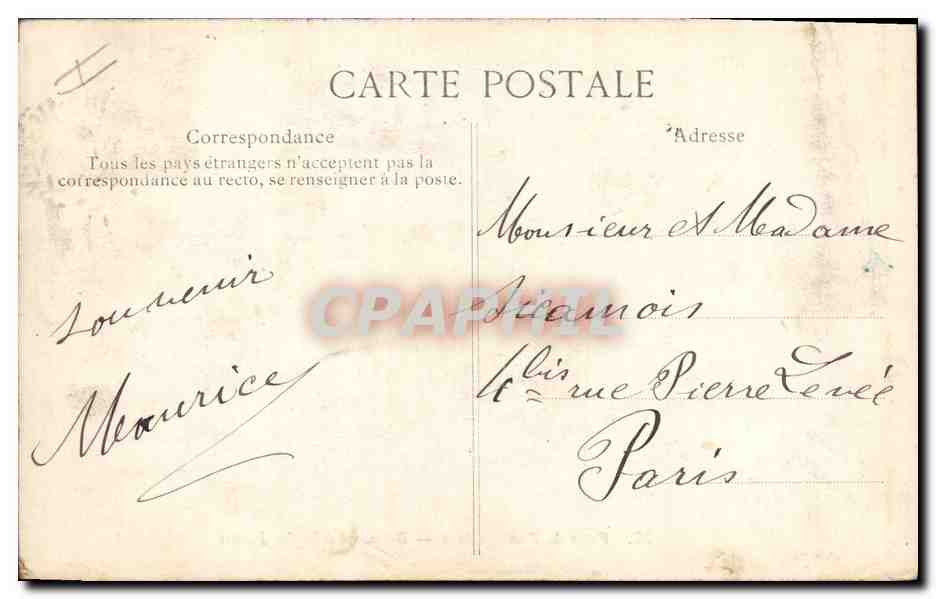 CARTE POSTALE
Correspondance
Tous les pays étrangers n'acceptent pas la
correspondance au recto, se renseigner à la poste.
Souvenir
Maurice
Adresse
Monsieur et Madame
4 bis rue Pierre Levée
Paris
CPAPHIL